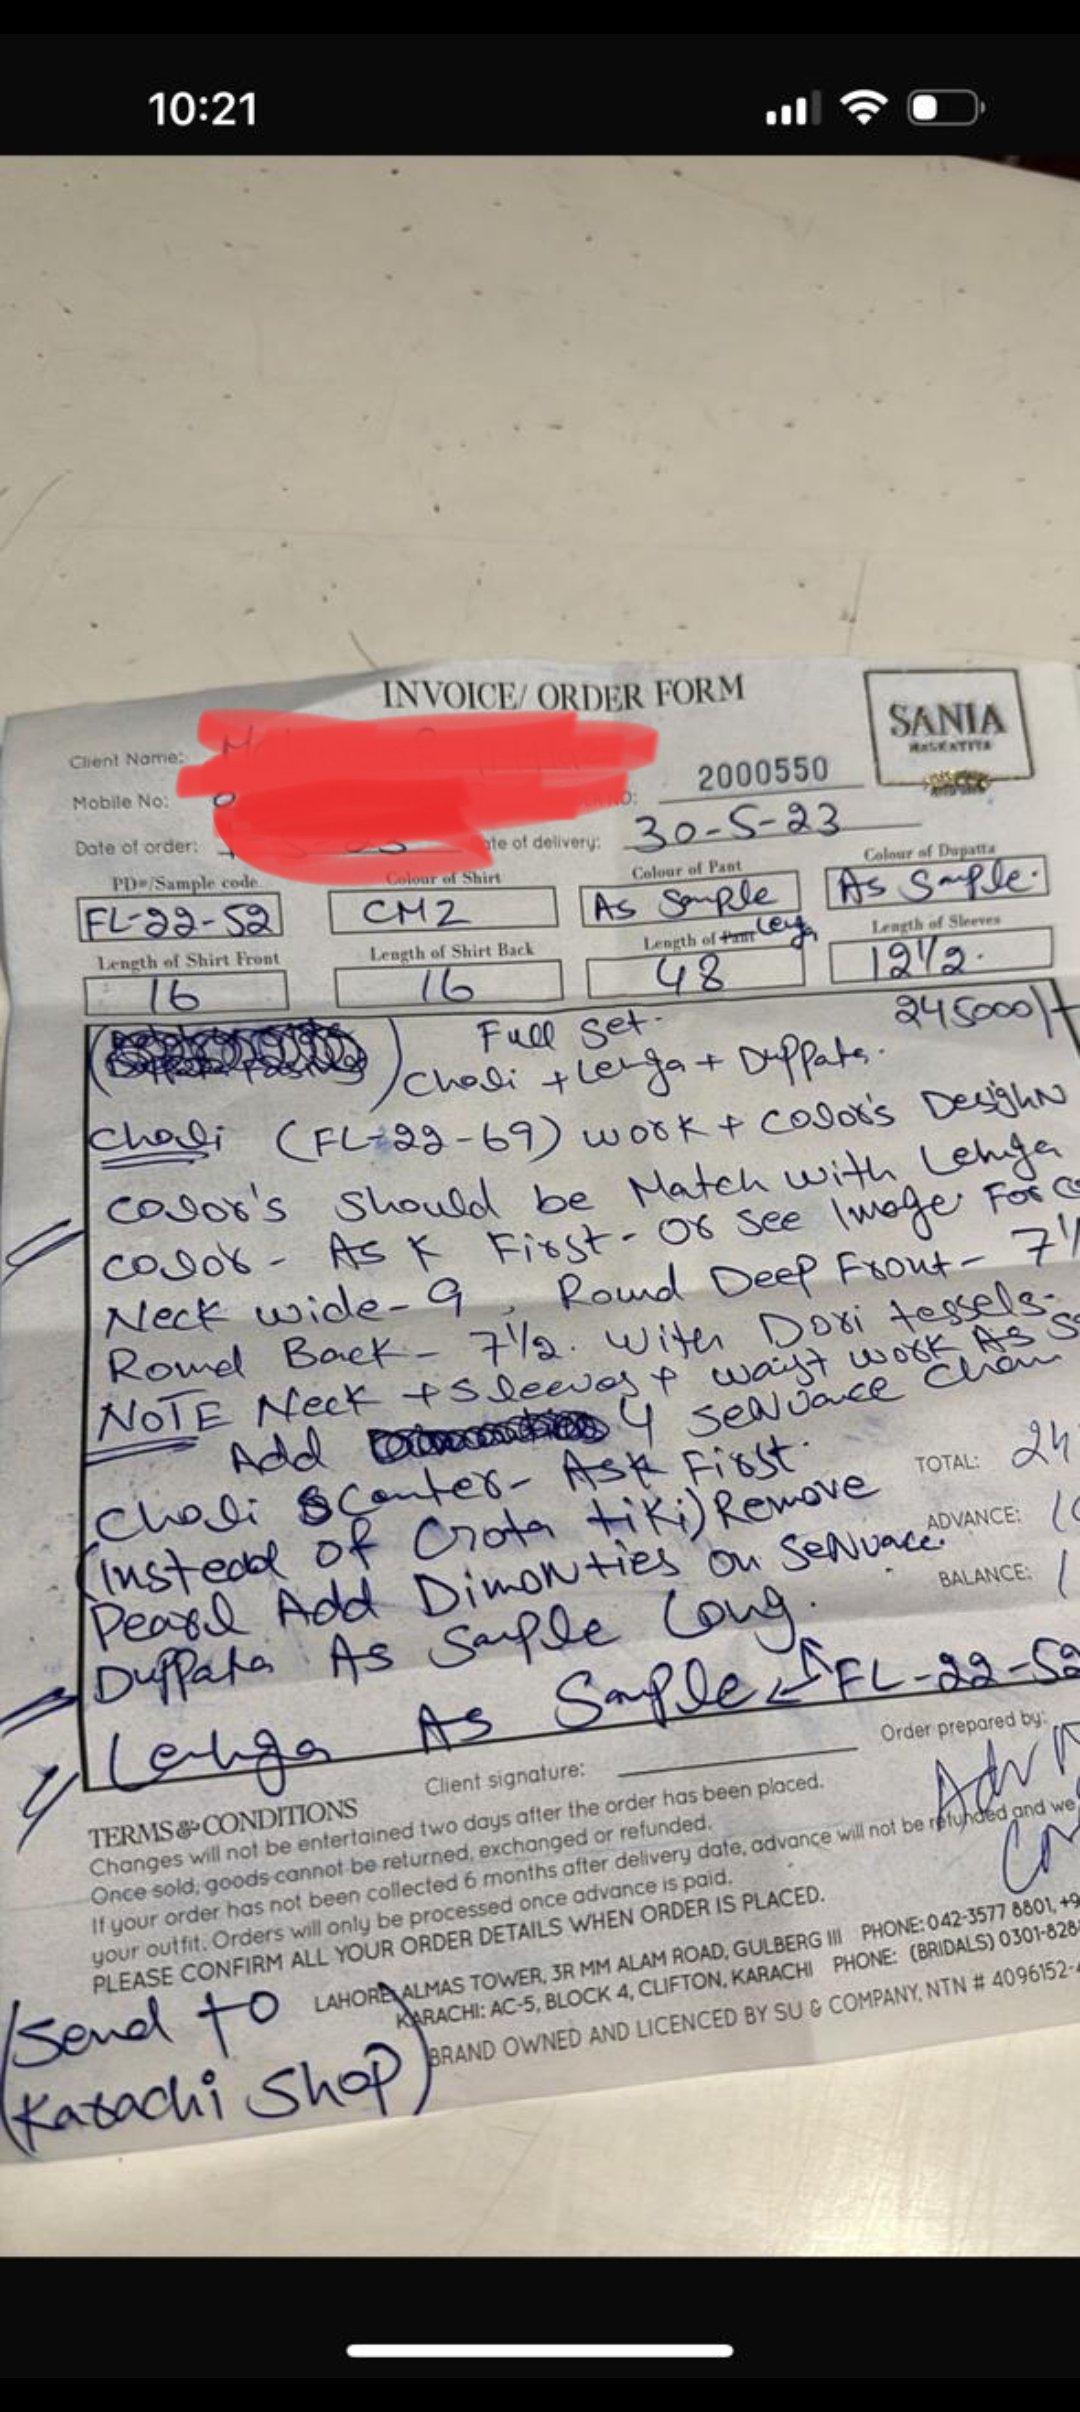 10:21
INVOICE/ ORDER FORM
SANIA
MASKATIYA
Client Name:
Mobile No:
NO: 2000550
Date of order:
te of delivery: 30-5-23
PD#/Sample code
Colour of Shirt
Colour of Pant
Colour of Dupatta
FL-22-52
CM2
As Sample
As Sample.
Length of Shirt Front
Length of Shirt Back
Length of Pant Lenga
Length of Sleeves
16
16
48
12 1/2.
Full Set.
245000/-
Choli + Lenga + Duppata.
Choli (FL-22-69) work + Color's Desighn
Color's Should be Match with Lehga
Color - Ask First - Or See Image For Co
Neck wide - 9, Round Deep Front - 7 1/
Round Back - 7 1/2. With Dori tessels.
NOTE Neck + Sleeves + waist work As S
Add 4 Senuance
Choli Center - Ask First.
(Instead of Crota tiki) Remove
Pearl Add Dimonties on Senuace.
Duppata As Sample Long.
Lehga As Sample FL-22-52
TOTAL: 24
ADVANCE: 1
BALANCE: 1
Client signature:
Order prepared by:
TERMS & CONDITIONS
Changes will not be entertained two days after the order has been placed.
Once sold, goods cannot be returned, exchanged or refunded.
If your order has not been collected 6 months after delivery date, advance will not be refunded and we
your outfit. Orders will only be processed once advance is paid.
PLEASE CONFIRM ALL YOUR ORDER DETAILS WHEN ORDER IS PLACED.
LAHORE: ALMAS TOWER, 3R MM ALAM ROAD, GULBERG III PHONE: 042-3577 8801, +9
KARACHI: AC-5, BLOCK 4, CLIFTON, KARACHI PHONE: (BRIDALS) 0301-828
BRAND OWNED AND LICENCED BY SU & COMPANY, NTN # 4096152-
(Send to
Karachi Shop)